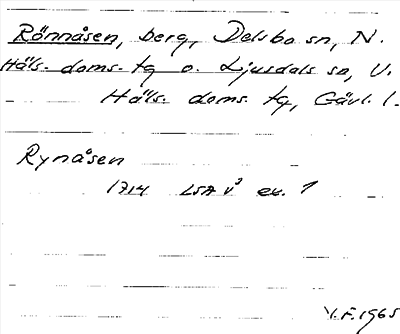 Rönnåsen, berg, Delsbo sn, N.
Häls. doms. tg o. Ljusdals sn, V.
Häls. doms. tg, Gävl. l.
Rynåsen
1714 LSA V³ ex. 1
V.F. 1965